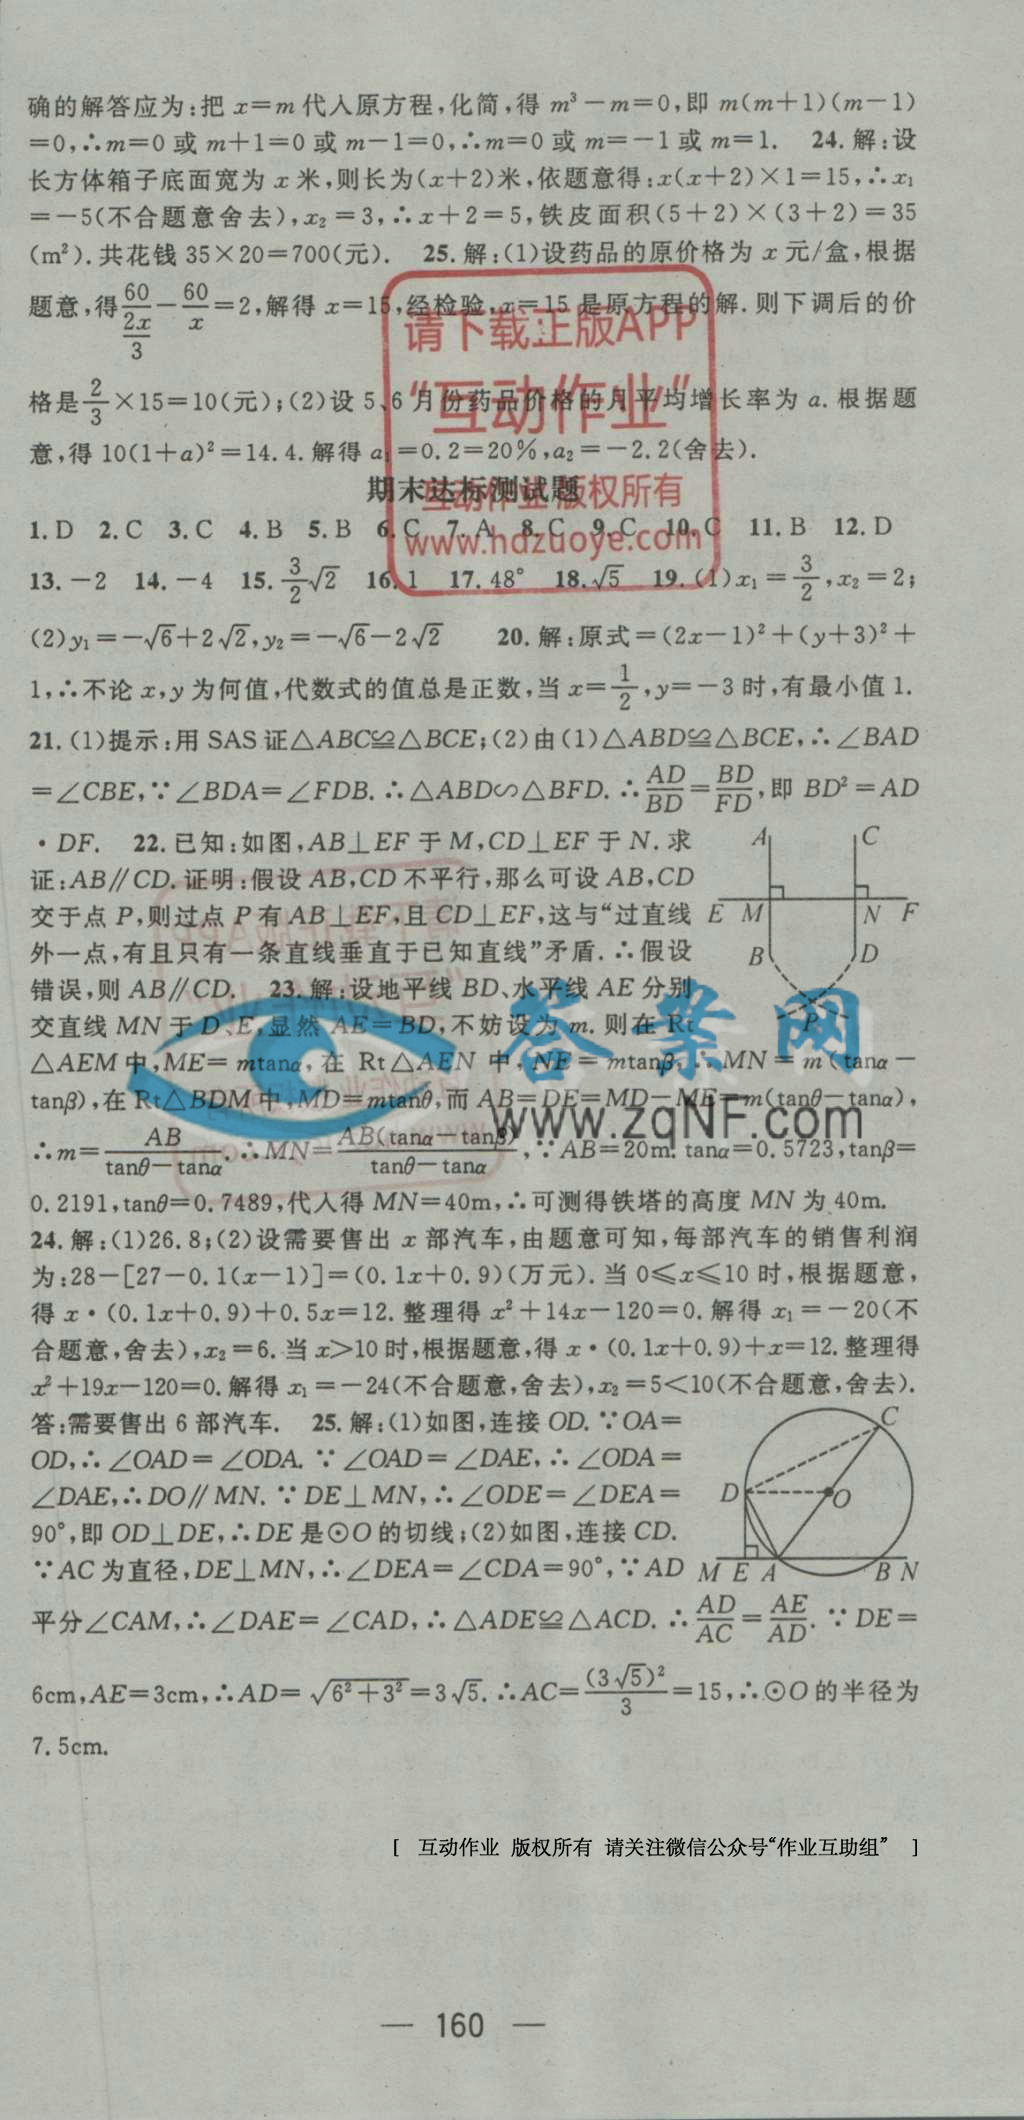 确的解答应为:把 x=m 代入原方程,化简,得 m³-m=0,即 m(m+1)(m-1)
=0,∴m=0 或 m+1=0 或 m-1=0,∴m=0 或 m=-1 或 m=1. 24.解:设
长方体箱子底面宽为 x 米,则长为(x+2)米,依题意得:x(x+2)×1=15,∴x₁
=-5(不合题意舍去),x₂=3,∴x+2=5,铁皮面积(5+2)×(3+2)=35
(m²).共花钱 35×20=700(元). 25.解:(1)设药品的原价格为 x 元/盒,根据
题意,得60/(2x/3)-60/x=2,解得 x=15,经检验,x=15 是原方程的解.则下调后的价
格是2/3×15=10(元);(2)设 5、6 月份药品价格的月平均增长率为 a.根据题
意,得 10(1+a)²=14.4.解得 a₁=0.2=20%,a₂=-2.2(舍去).
请下载正版APP
“互动作业”
互动作业 版权所有
www.hdzuoye.com
期末达标测试题
1.D 2.C 3.C 4.B 5.B 6.C 7.A 8.C 9.C 10.C 11.B 12.D
13.-2 14.-4 15.3/2√2 16.1 17.48° 18.√5 19.(1)x₁=3/2,x₂=2;
(2)y₁=-√6+2√2,y₂=-√6-2√2 20.解:原式=(2x-1)²+(y+3)²+
1,∴不论 x,y 为何值,代数式的值总是正数,当 x=1/2,y=-3 时,有最小值 1.
21.(1)提示:用 SAS 证△ABC≌△BCE;(2)由(1)△ABD≌△BCE,∴∠BAD
=∠CBE,∵∠BDA=∠FDB.∴△ABD∽△BFD.∴AD/BD=BD/FD,即 BD²=AD
·DF. 22.已知:如图,AB⊥EF 于 M,CD⊥EF 于 N.求
证:AB∥CD.证明:假设 AB,CD 不平行,那么可设 AB,CD
交于点 P,则过点 P 有 AB⊥EF,且 CD⊥EF,这与“过直线
外一点,有且只有一条直线垂直于已知直线”矛盾.∴假设
错误,则 AB∥CD. 23.解:设地平线 BD、水平线 AE 分别
A C
E M N F
B D
P
交直线 MN 于 D、E,显然 AE=BD,不妨设为 m.则在 Rt
△AEM 中,ME=mtanα,在 Rt△AEN 中,NE=mtanβ,∴MN=m(tanα-
tanβ),在 Rt△BDM 中,MD=mtanθ,而 AB=DE=MD-ME=m(tanθ-tanα),
∴m=AB/(tanθ-tanα).∴MN=AB(tanα-tanβ)/(tanθ-tanα),∵AB=20m.tanα=0.5723,tanβ=
0.2191,tanθ=0.7489,代入得 MN=40m,∴可测得铁塔的高度 MN 为 40m.
答案网
www.zqNF.com
24.解:(1)26.8;(2)设需要售出 x 部汽车,由题意可知,每部汽车的销售利润
为:28-[27-0.1(x-1)]=(0.1x+0.9)(万元).当 0≤x≤10 时,根据题意,
得 x·(0.1x+0.9)+0.5x=12.整理得 x²+14x-120=0.解得 x₁=-20(不
合题意,舍去),x₂=6.当 x>10 时,根据题意,得 x·(0.1x+0.9)+x=12.整理得
x²+19x-120=0.解得 x₁=-24(不合题意,舍去),x₂=5<10(不合题意,舍去).
答:需要售出 6 部汽车. 25.解:(1)如图,连接 OD.∵OA=
OD,∴∠OAD=∠ODA.∵∠OAD=∠DAE,∴∠ODA=
∠DAE,∴DO∥MN.∵DE⊥MN,∴∠ODE=∠DEA=
90°,即 OD⊥DE,∴DE 是⊙O 的切线;(2)如图,连接 CD.
∵AC 为直径,DE⊥MN,∴∠DEA=∠CDA=90°,∵AD
C
D O
M E A B N
平分∠CAM,∴∠DAE=∠CAD,∴△ADE≌△ACD.∴AD/AC=AE/AD.∵DE=
6cm,AE=3cm,∴AD=√(6²+3²)=3√5.∴AC=(3√5)²/3=15,∴⊙O 的半径为
7.5cm.
[ 互动作业 版权所有 请关注微信公众号“作业互助组” ]
— 160 —